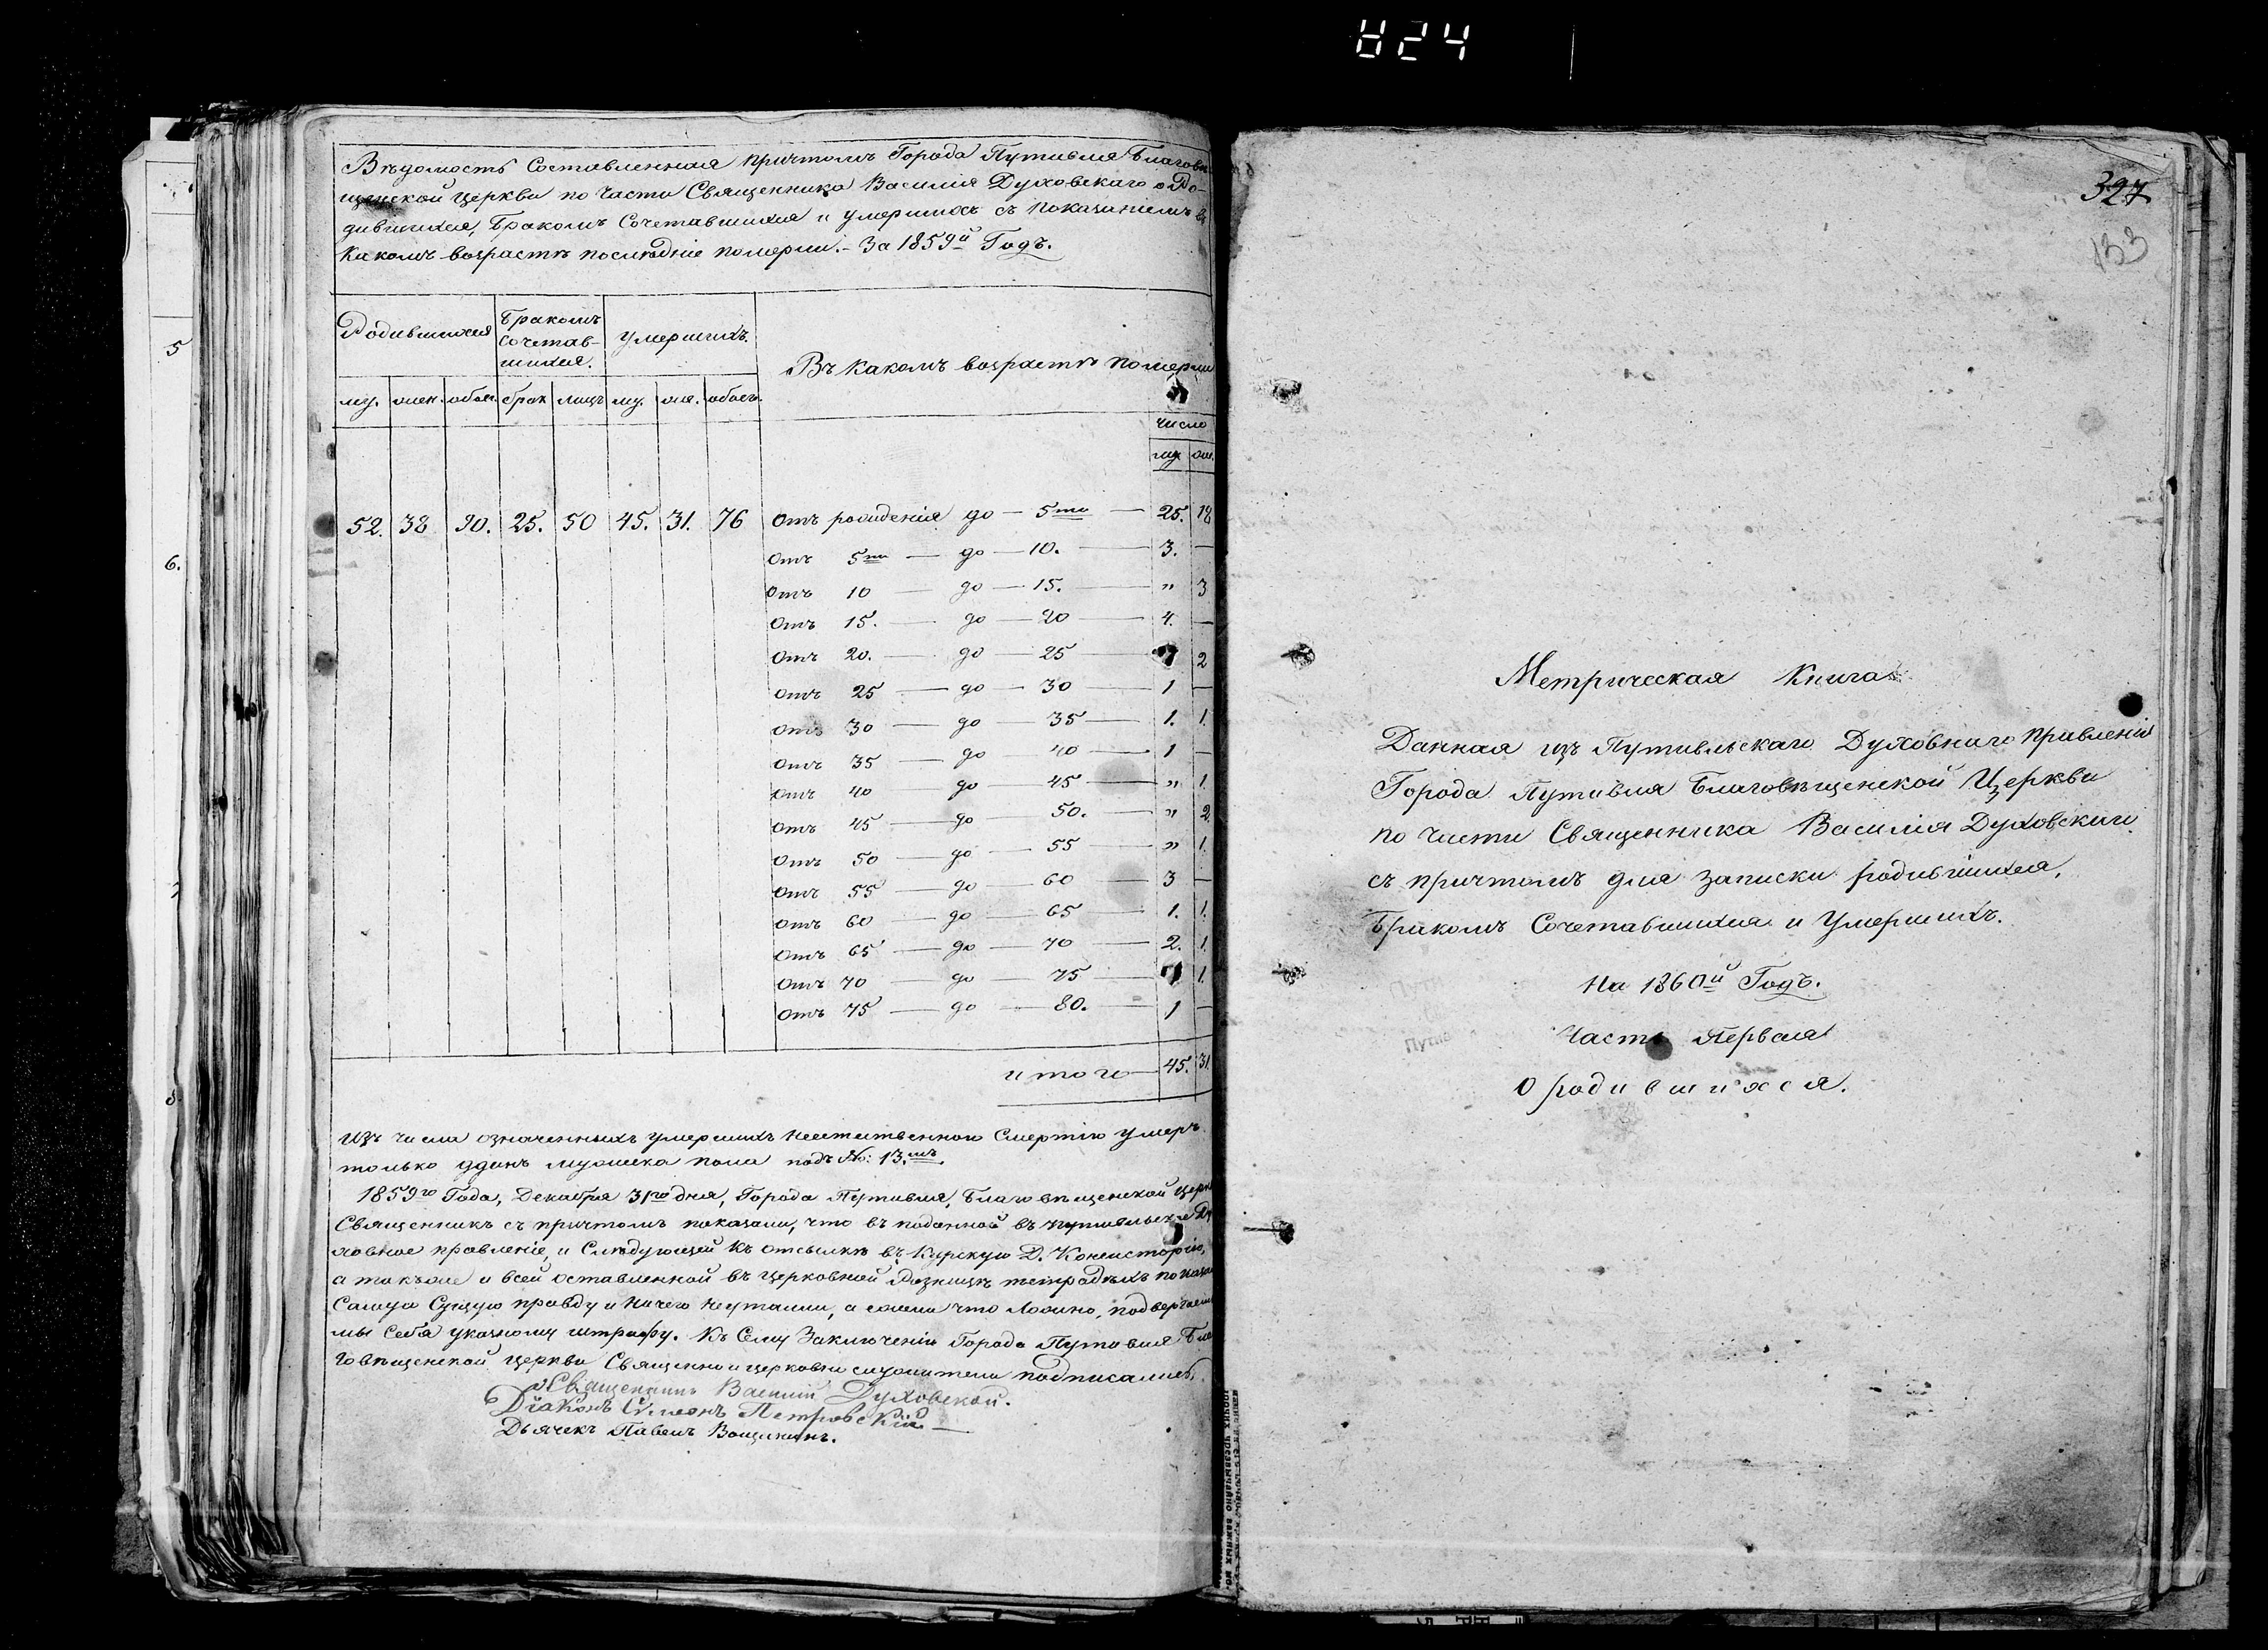 824
Вѣдомость Составленная причтомъ Города Путивля Благовѣ
щенской церкви по части Священника Василія Духовскаго о Ро-
дившихся, Бракомъ Сочетавшихся и умершихъ съ показаніемъ въ
какомъ возрастѣ послѣдніе померли. – За 1859й Годъ.
Родившихся
Бракомъ
Сочетав-
шихся.
умершихъ.
Въ какомъ возрастѣ померли
му. жен. обоег. брак лицъ му. же. обоег.
число
му. же.
52. 38 90. 25. 50 45. 31. 76 Отъ рожденія до – 5ти — 25. 18
Отъ 5ти — до — 10. — 3. —
Отъ 10 — до — 15. — " 3
Отъ 15. — до — 20 — 4. —
Отъ 20. — до — 25 — 2
Отъ 25 — до — 30 — 1 —
Отъ 30 — до — 35 — 1. 1.
Отъ 35 — до — 40 — 1 —
Отъ 40 — до — 45 — " 1.
Отъ 45 — до — 50. — " 2.
Отъ 50 — до — 55 — " 1.
Отъ 55 — до — 60 — 3 —
Отъ 60 — до — 65 — 1. 1.
Отъ 65 — до — 70 — 2. 1.
Отъ 70 — до — 75 — 1.
Отъ 75 — до — 80. — 1 —
итого — 45. 31
Изъ числа означенныхъ умершихъ неестественною Смертію умеръ
только одинъ мужеска пола подъ №: 13.мъ
1859го Года, Декабря 31го дня, Города Путивля, Благовѣщенской церк
Священникъ съ причтомъ показали, что въ поданной въ Путивльское Ду
ховное правленіе, и Слѣдующей къ отсылкѣ въ Курскую Д. Консисторію,
а такъже и всей оставленной въ церковной Ризницѣ тетрадѣхъ показа
Самую Сущую правду и ничего неутаили, а ежели что Ложно, подвергаем
мы Себя указному штрафу. Къ Сему Заключенію Города Путивля Бла
говѣщенской церкви Священно и церковно служители подписались.
Священникъ Василій Духовской.
Діаконъ Симеонъ Петровскій
Дьячекъ Павелъ
5
6.
8.
327
133
Метрическая Книга
Данная изъ Путивльскаго Духовнаго Правленія
Города Путивля Благовѣщенской Церкви
по части Священника Василія Духовскаго
съ причтомъ для записки родившихся,
Бракомъ Сочетавшихся и Умершихъ.
На 1860й Годъ.
Часть Первая
О родившихся.